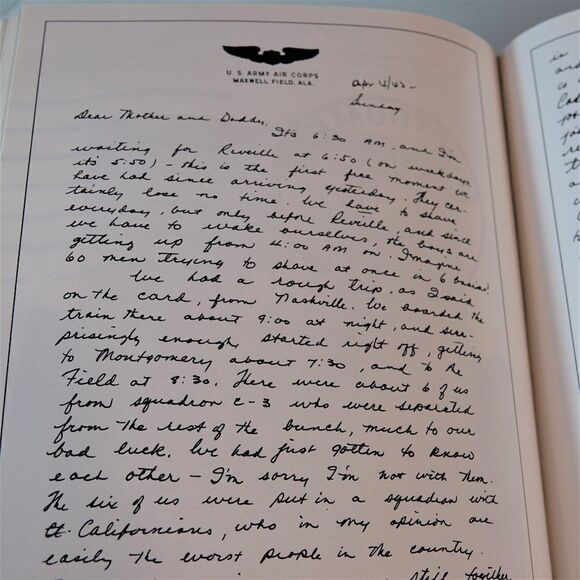 U.S. ARMY AIR CORPS
MAXWELL FIELD, ALA.
Apr 4/43 -
Sunday
Dear Mother and Daddy,
It's 6:30 AM. and I'm
waiting for Reville at 6:50 (on weekdays
it's 5:50) - this is the first free moment we
have had since arriving yesterday. They cer-
tainly lose no time. We have to shave
everyday, but only before Reville, and since
we have to wake ourselves, the boys are
getting up from 4:00 AM on. Imagine
60 men trying to shave at once in 6 basins!
We had a rough trip, as I said
on the card, from Nashville. We boarded the
train there about 9:00 at night, and sur-
prisingly enough, started right off, getting
to Montgomery about 7:30, and to the
Field at 8:30. There were about 6 of us
from squadron C-3 who were separated
from the rest of the bunch, much to our
bad luck. We had just gotten to know
each other - I'm sorry I'm not with them.
The six of us were put in a squadron with
Californians, who in my opinion are
easily the worst people in the country.
still together